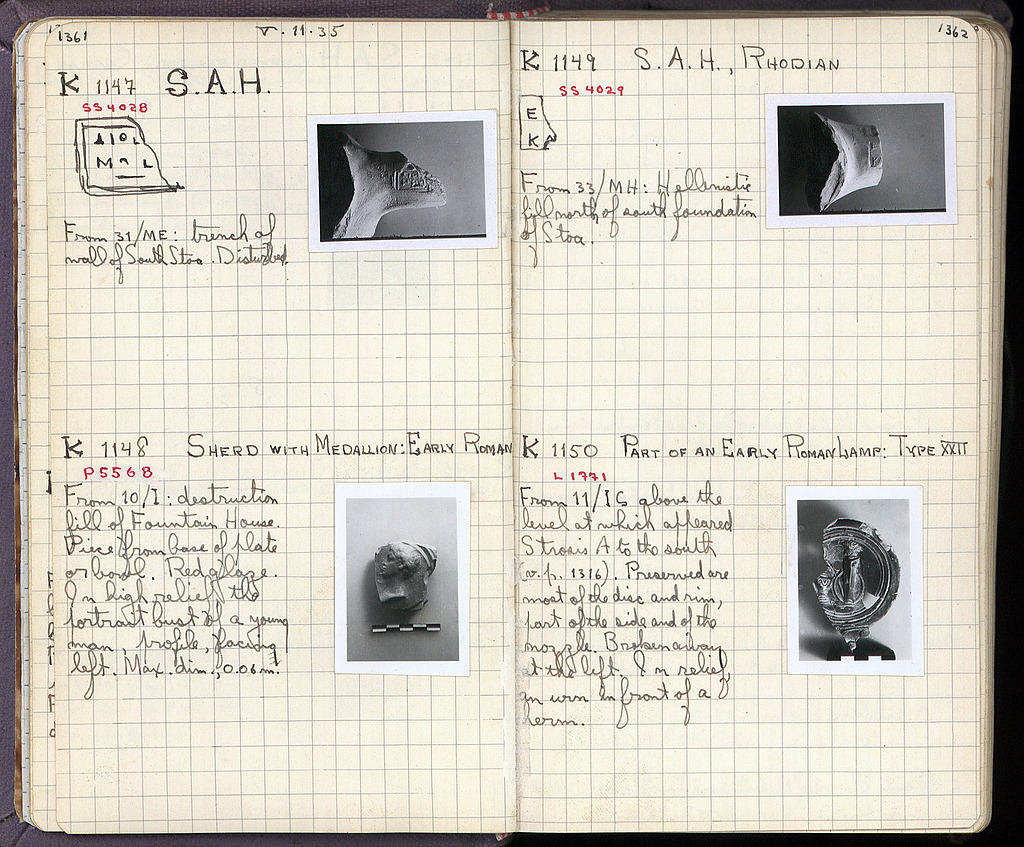 1361
V. 11. 35
K 1147 S.A.H.
SS 4028
From 31/ME: trench of
wall of South Stoa. Disturbed.
K 1148 SHERD WITH MEDALLION: EARLY ROMAN
P 5568
From 10/I: destruction
fill of Fountain House.
Piece from base of plate
or bowl. Red glaze.
In high relief the
portrait bust of a young
man, profile, facing
left. Max. dim., 0.06 m.
1362
K 1149 S.A.H., RHODIAN
SS 4029
E
K
From 33/MH: Hellenistic
fill north of south foundation
of Stoa.
K 1150 PART OF AN EARLY ROMAN LAMP: TYPE XXII
L 1771
From 11/IS above the
level at which appeared
Strosis A to the south
(v. p. 1316). Preserved are
most of the disc and rim,
part of the side and of the
nozzle. Broken away
at the left. In relief,
an urn in front of a
herm.